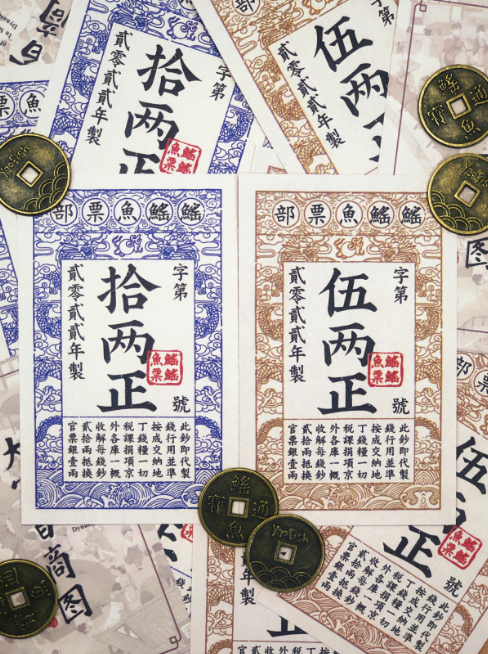 字第
拾两正
貳零貳貳年製
鰩鰩魚票
字第
伍两正
貳零貳貳年製
鰩鰩魚票部
字第
號
拾两正
貳零貳貳年製
鰩鰩魚票
此鈔即代製
錢行用並準
按成交納地
丁錢糧一切
税課撰項京
外各庫一概
收解每錢鈔
貳拾兩抵換
官票銀壹兩
鰩鰩魚票部
字第
號
伍两正
貳零貳貳年製
鰩鰩魚票
此鈔即代製
錢行用並準
按成交納地
丁錢糧一切
税課撰項京
外各庫一概
收解每錢鈔
貳拾兩抵換
官票銀壹兩
鰩魚通寶
鰩魚通寶
百商图
號
伍
正